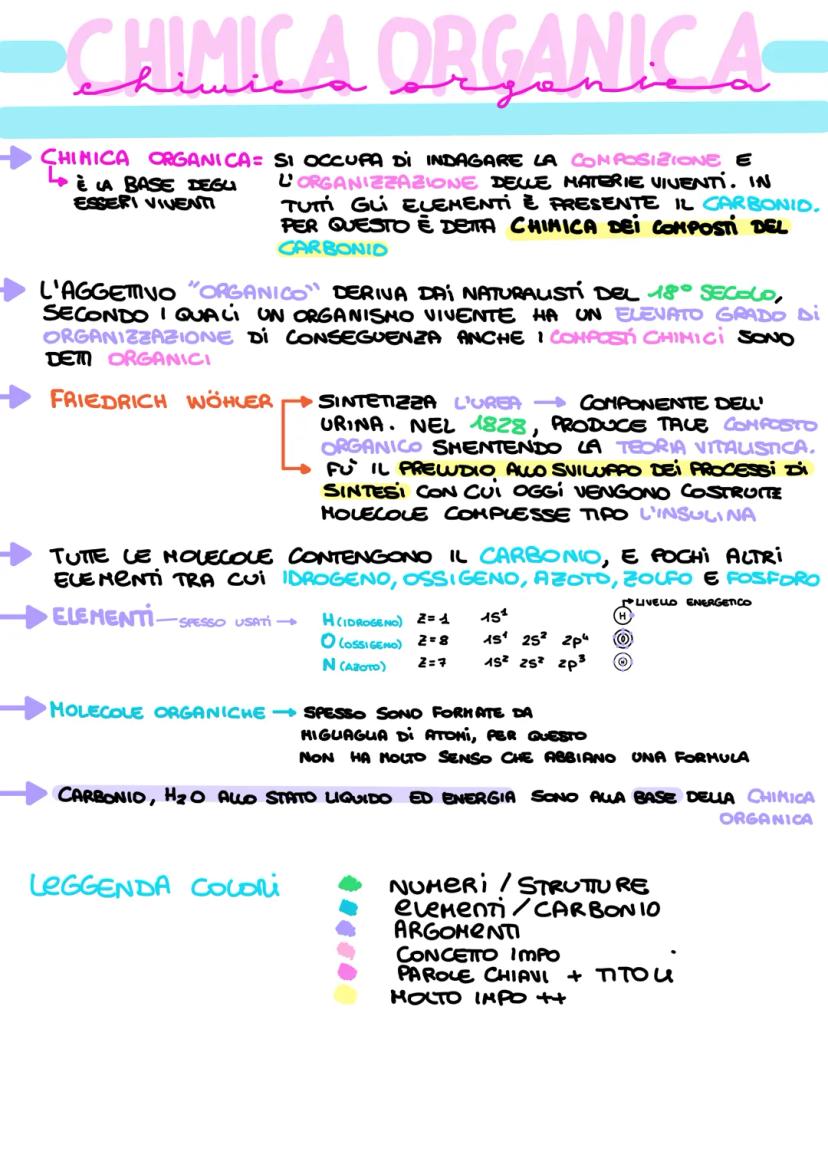 CHIMICA ORGANICA
chimica organica
CHIMICA ORGANICA= SI OCCUPA DI INDAGARE LA COMPOSIZIONE E
↳ È LA BASE DEGLI L'ORGANIZZAZIONE DELLE MATERIE VIVENTI. IN
ESSERI VIVENTI TUTTI GLI ELEMENTI È PRESENTE IL CARBONIO.
PER QUESTO È DETTA CHIMICA DEI COMPOSTI DEL
CARBONIO
L'AGGETTIVO "ORGANICO" DERIVA DAI NATURALISTI DEL 18° SECOLO,
SECONDO I QUALI UN ORGANISMO VIVENTE HA UN ELEVATO GRADO DI
ORGANIZZAZIONE DI CONSEGUENZA ANCHE I COMPOSTI CHIMICI SONO
DETTI ORGANICI
FRIEDRICH WÖHLER SINTETIZZA L'UREA → COMPONENTE DELL'
URINA. NEL 1828, PRODUCE TALE COMPOSTO
ORGANICO SMENTENDO LA TEORIA VITALISTICA.
FU' IL PRELUDIO ALLO SVILUPPO DEI PROCESSI DI
SINTESI CON CUI OGGI VENGONO COSTRUITE
MOLECOLE COMPLESSE TIPO L'INSULINA
TUTTE LE MOLECOLE CONTENGONO IL CARBONIO, E POCHI ALTRI
ELEMENTI TRA CUI IDROGENO, OSSIGENO, AZOTO, ZOLFO E FOSFORO
LIVELLO ENERGETICO
ELEMENTI — SPESSO USATI → H (IDROGENO) Z=1 1S¹ H
O (OSSIGENO) Z=8 1S¹ 2S² 2p⁴ O
N (AZOTO) Z=7 1S² 2S² 2p³
MOLECOLE ORGANICHE → SPESSO SONO FORMATE DA
MIGLIAGLIA DI ATOMI, PER QUESTO
NON HA MOLTO SENSO CHE ABBIANO UNA FORMULA
CARBONIO, H₂O ALLO STATO LIQUIDO ED ENERGIA SONO ALLA BASE DELLA CHIMICA
ORGANICA
LEGGENDA COLORI
NUMERI / STRUTTURE
ELEMENTI / CARBONIO
ARGOMENTI
CONCETTO IMPO
PAROLE CHIAVI + TITOLI
MOLTO IMPO ++